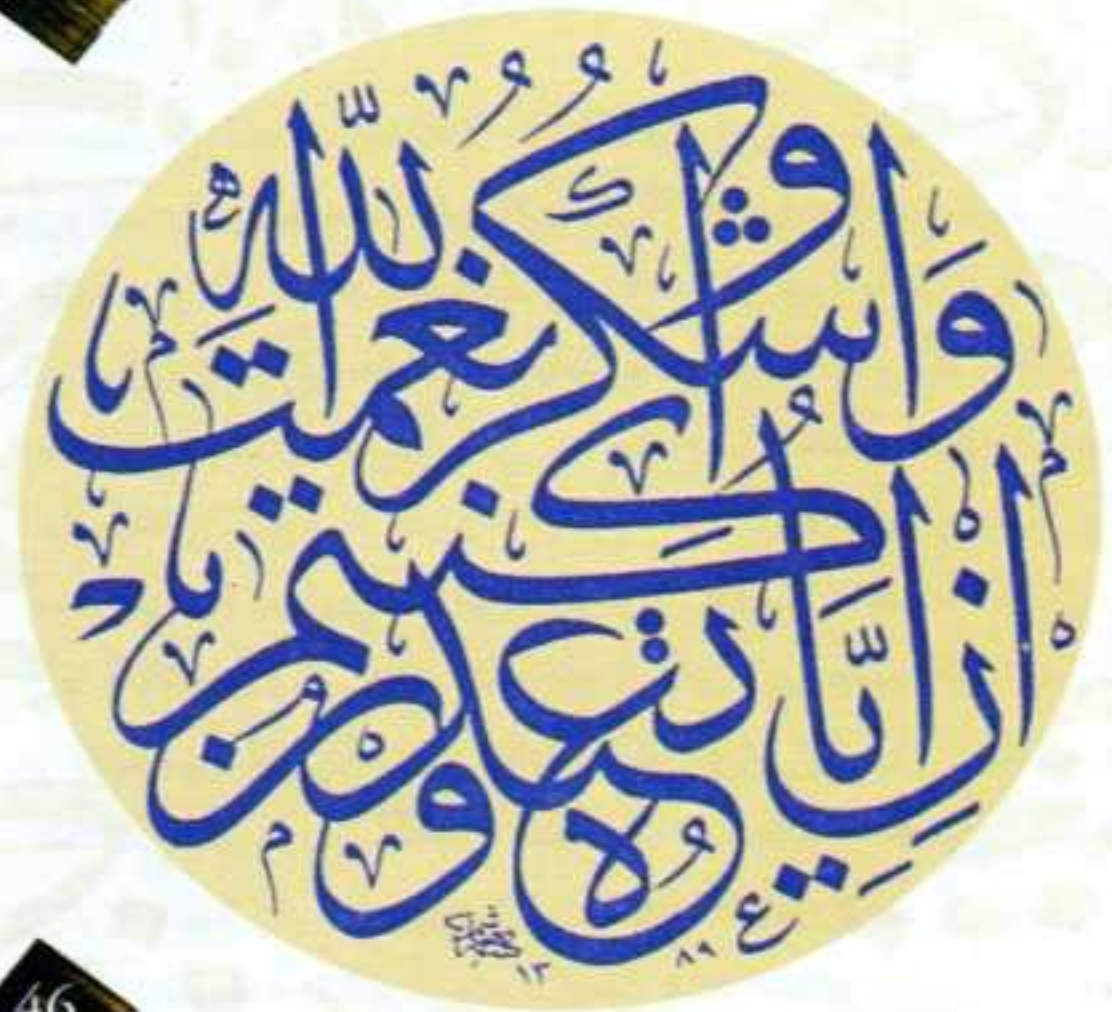 وَاشْكُرُوا نِعْمَتَ اللّٰهِ
إِنْ كُنْتُمْ إِيَّاهُ تَعْبُدُونَ
١٣ ٨٩
46